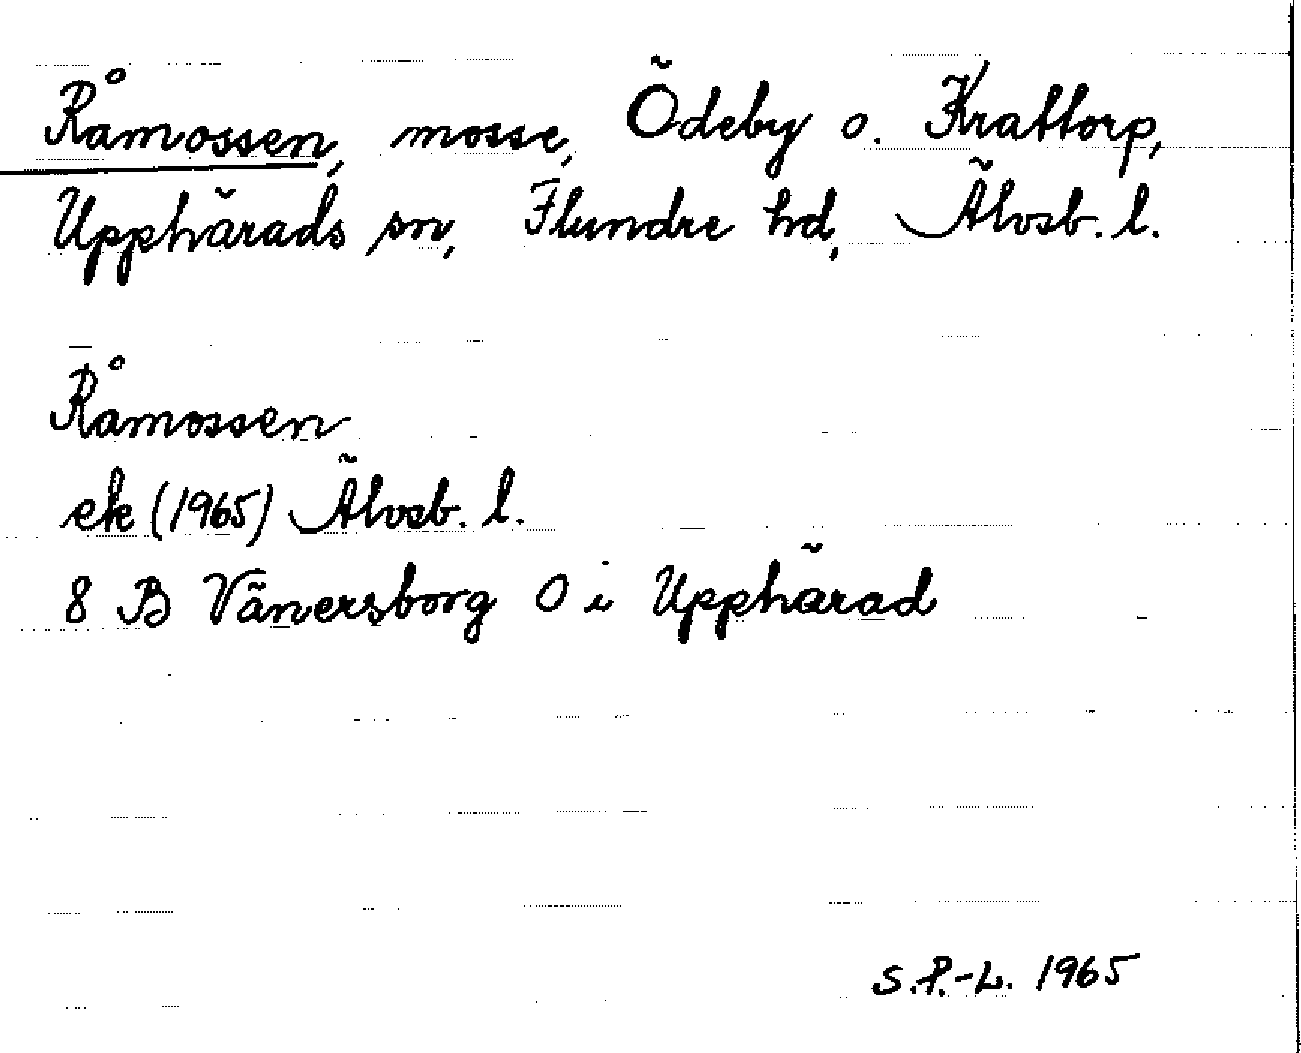 Råmossen, mosse, Ödeby o. Krattorp,
Upphärads sn, Flundre hd, Älvsb. l.
Råmossen
ek (1965) Älvsb. l.
8 B Vänersborg O i Upphärad
S.P.-L. 1965